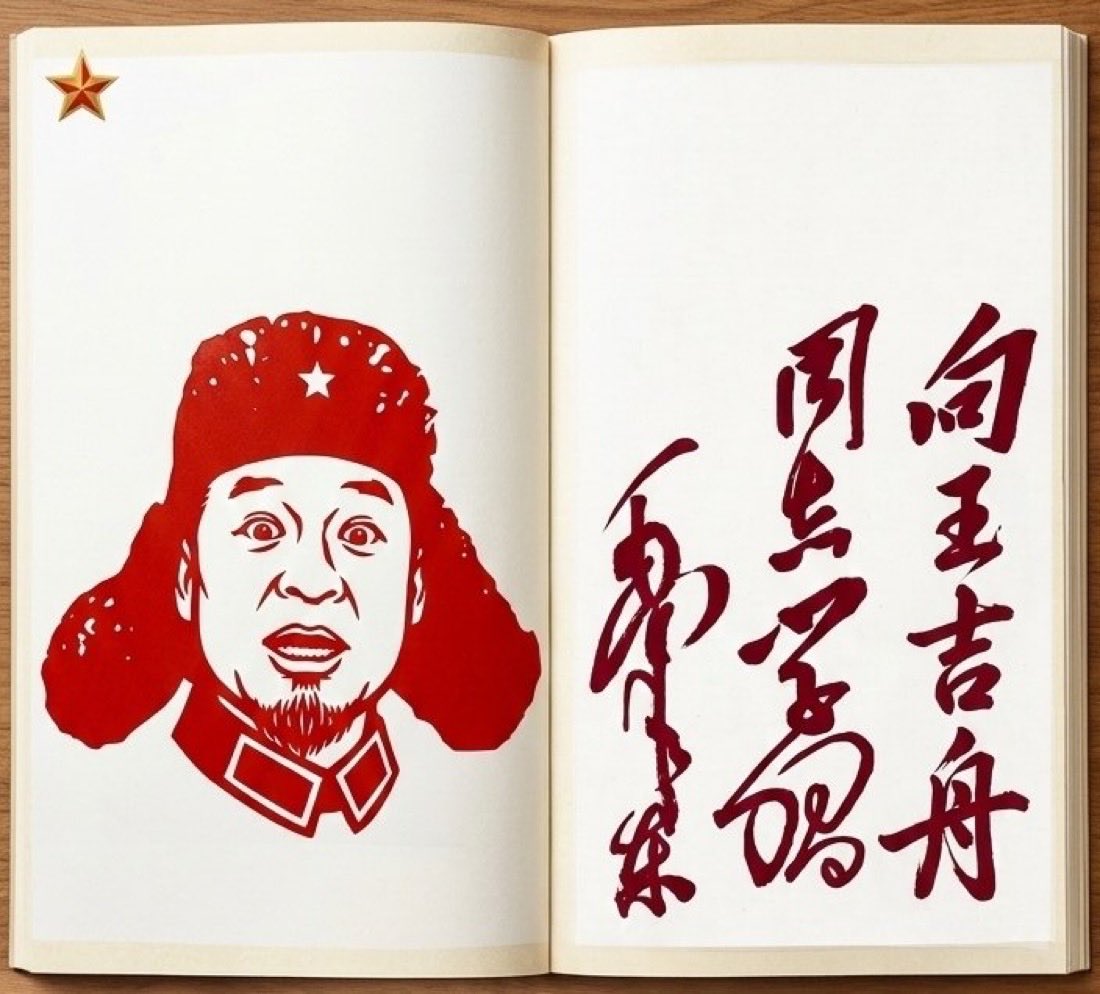 向王吉舟
同志学习
毛泽东